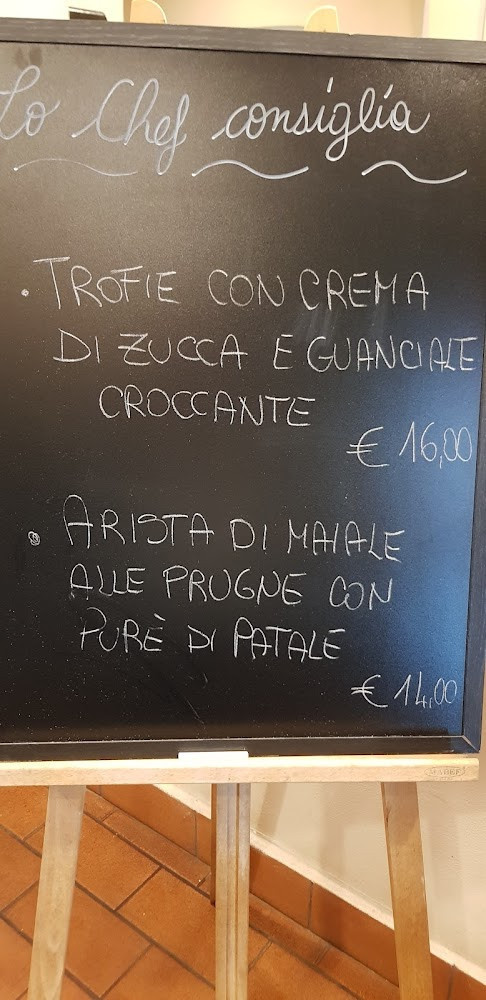 Lo Chef consiglia
• TROFIE CON CREMA
DI ZUCCA E GUANCIALE
CROCCANTE
€ 16,00
• ARISTA DI MAIALE
ALLE PRUGNE CON
PURÈ DI PATATE
€ 14,00